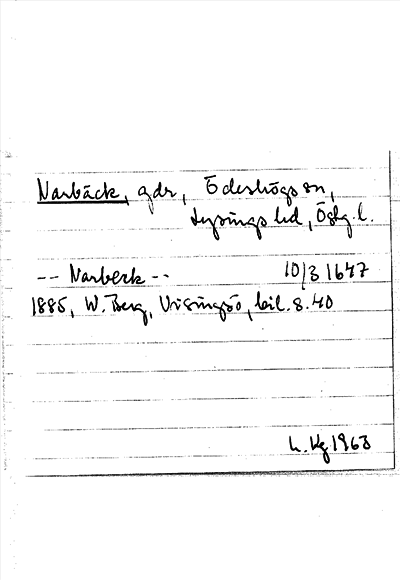 Narbäck, gdr, Ödeshögs sn,
Lysings hd, Östg. l.
-- Narbeck -- 10/3 1647
1885, W. Berg, Visingsö, bil. s. 40
L. Kg 1963